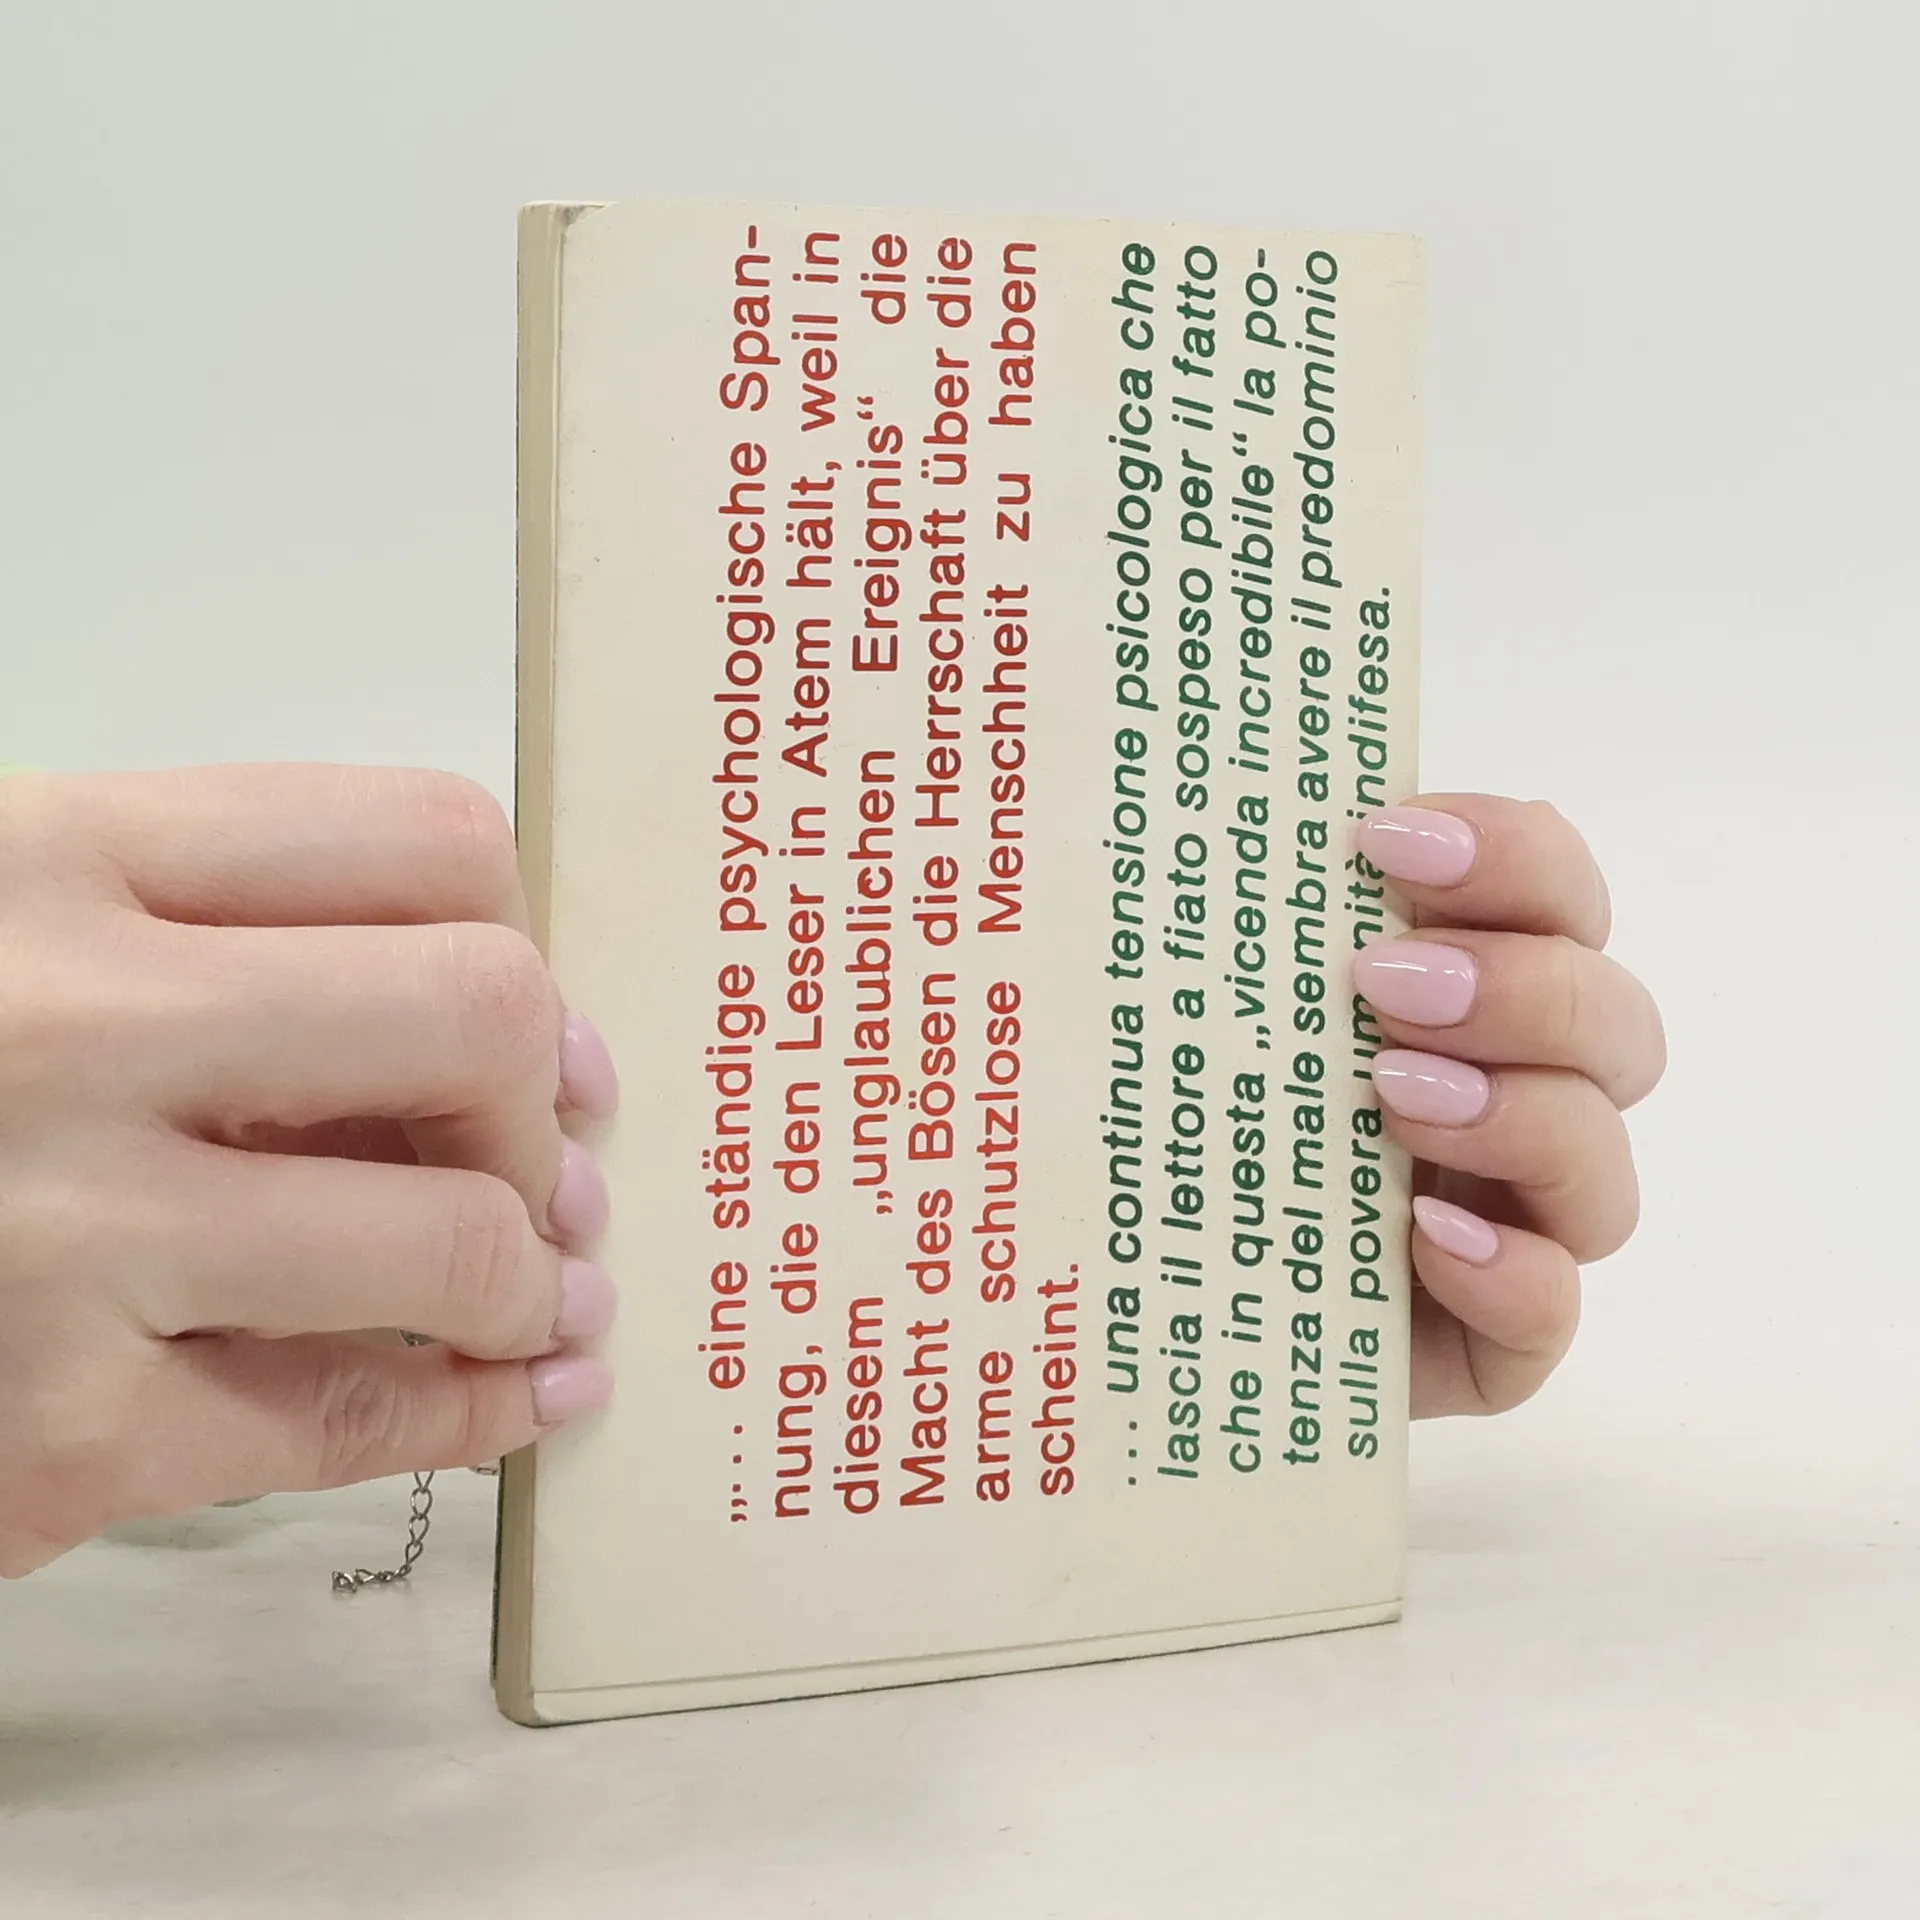 „... eine ständige psychologische Span-
nung, die den Leser in Atem hält, weil in
diesem „unglaublichen Ereignis“ die
Macht des Bösen die Herrschaft über die
arme schutzlose Menschheit zu haben
scheint.
... una continua tensione psicologica che
lascia il lettore a fiato sospeso per il fatto
che in questa „vicenda incredibile“ la po-
tenza del male sembra avere il predominio
sulla povera umanità indifesa.